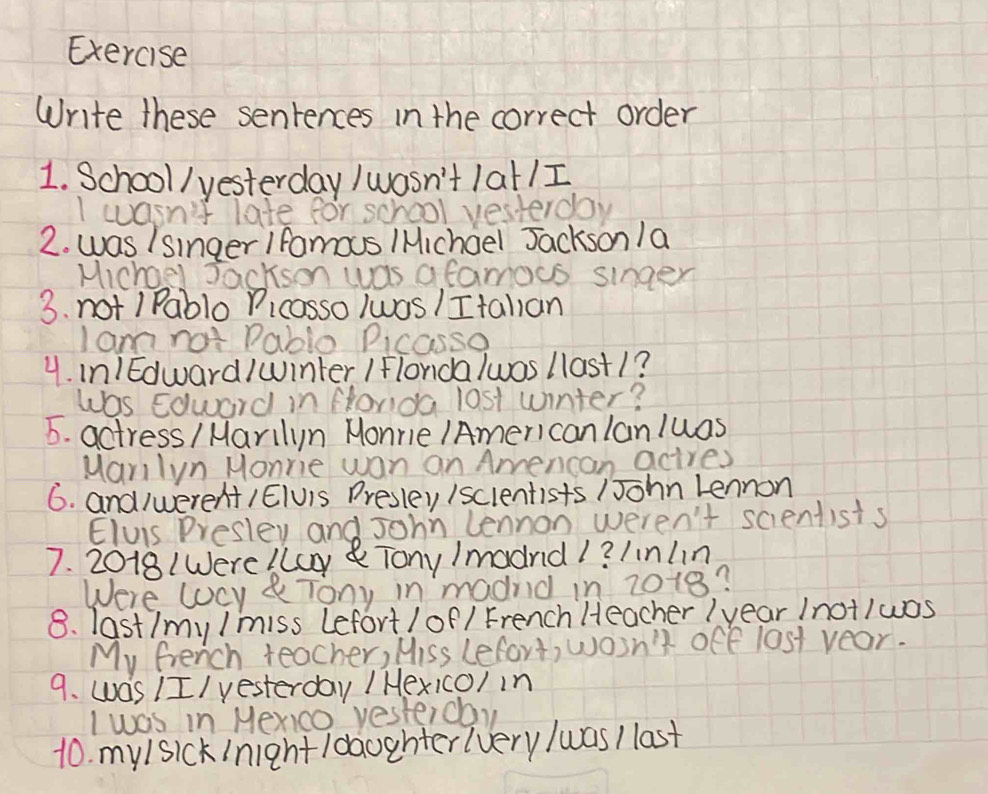 Exercise
Write these sentences in the correct order
1. School/yesterday/wasn't/at/I
I wasn't late for school yesterday
2. was/singer/famous/Michael Jackson/a
Michael Jackson was a famous singer
3. not/Pablo Picasso/was/Italian
I am not Pablo Picasso
4. in/Edward/winter/Florida/was/last/?
Was Edward in Florida last winter?
5. actress/Marilyn Monrie/American/an/was
Marilyn Monrie wan an American actres
6. and/weren't/Elvis Presley/scientists/John Lennon
Elvis Presley and John Lennon weren't scientists
7. 2018/Were/Lucy & Tony/madrid/?/in/in
Were Lucy & Tony in madrid in 2018?
8. last/my/miss Lefort/of/French/teacher/year/not/was
My french teacher, Miss Lefort, wasn't off last year.
9. was/I/yesterday/Mexico/in
I was in Mexico yesterday
10. my/sick/night/daughter/very/was/last